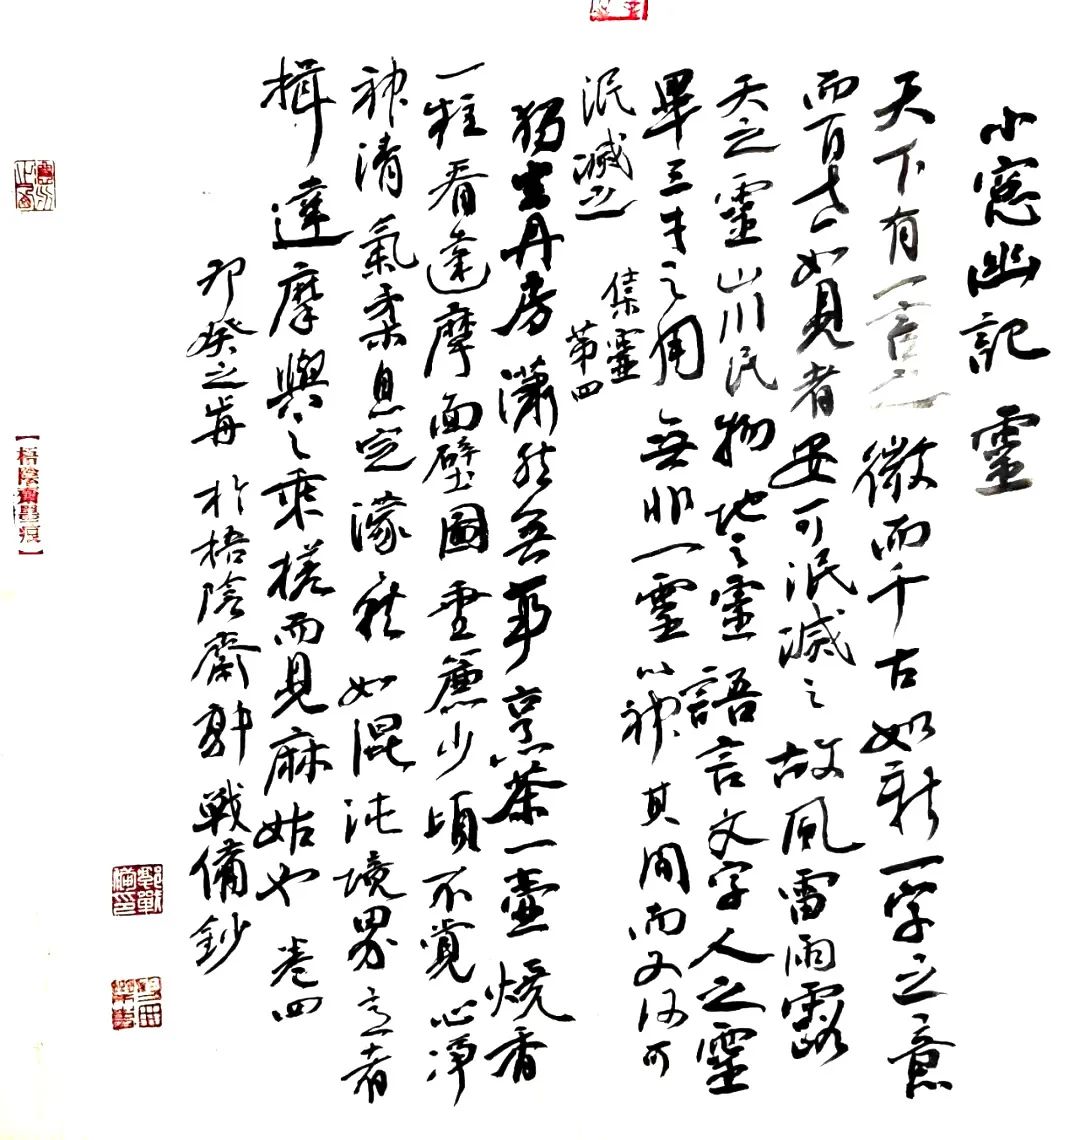 小窓幽記 靈
天下有一言之微而千古如新一字之意
而百世如見者安可泯滅之故風雷雨露
天之靈山川民物地之靈語言文字人之靈
畢三才之用無非一靈以神其間而又何可
泯滅之 集靈
第四
獨坐丹房瀟然無事烹茶一壺燒香
一炷看達摩面壁圖垂簾少頃不覺心淨
神清氣柔息定濛濛然如混沌境界意者
揖達摩與之乘槎而見麻姑也 卷四
卯癸之 於梧陰齋 戰備鈔
【梧陰齋墨痕】